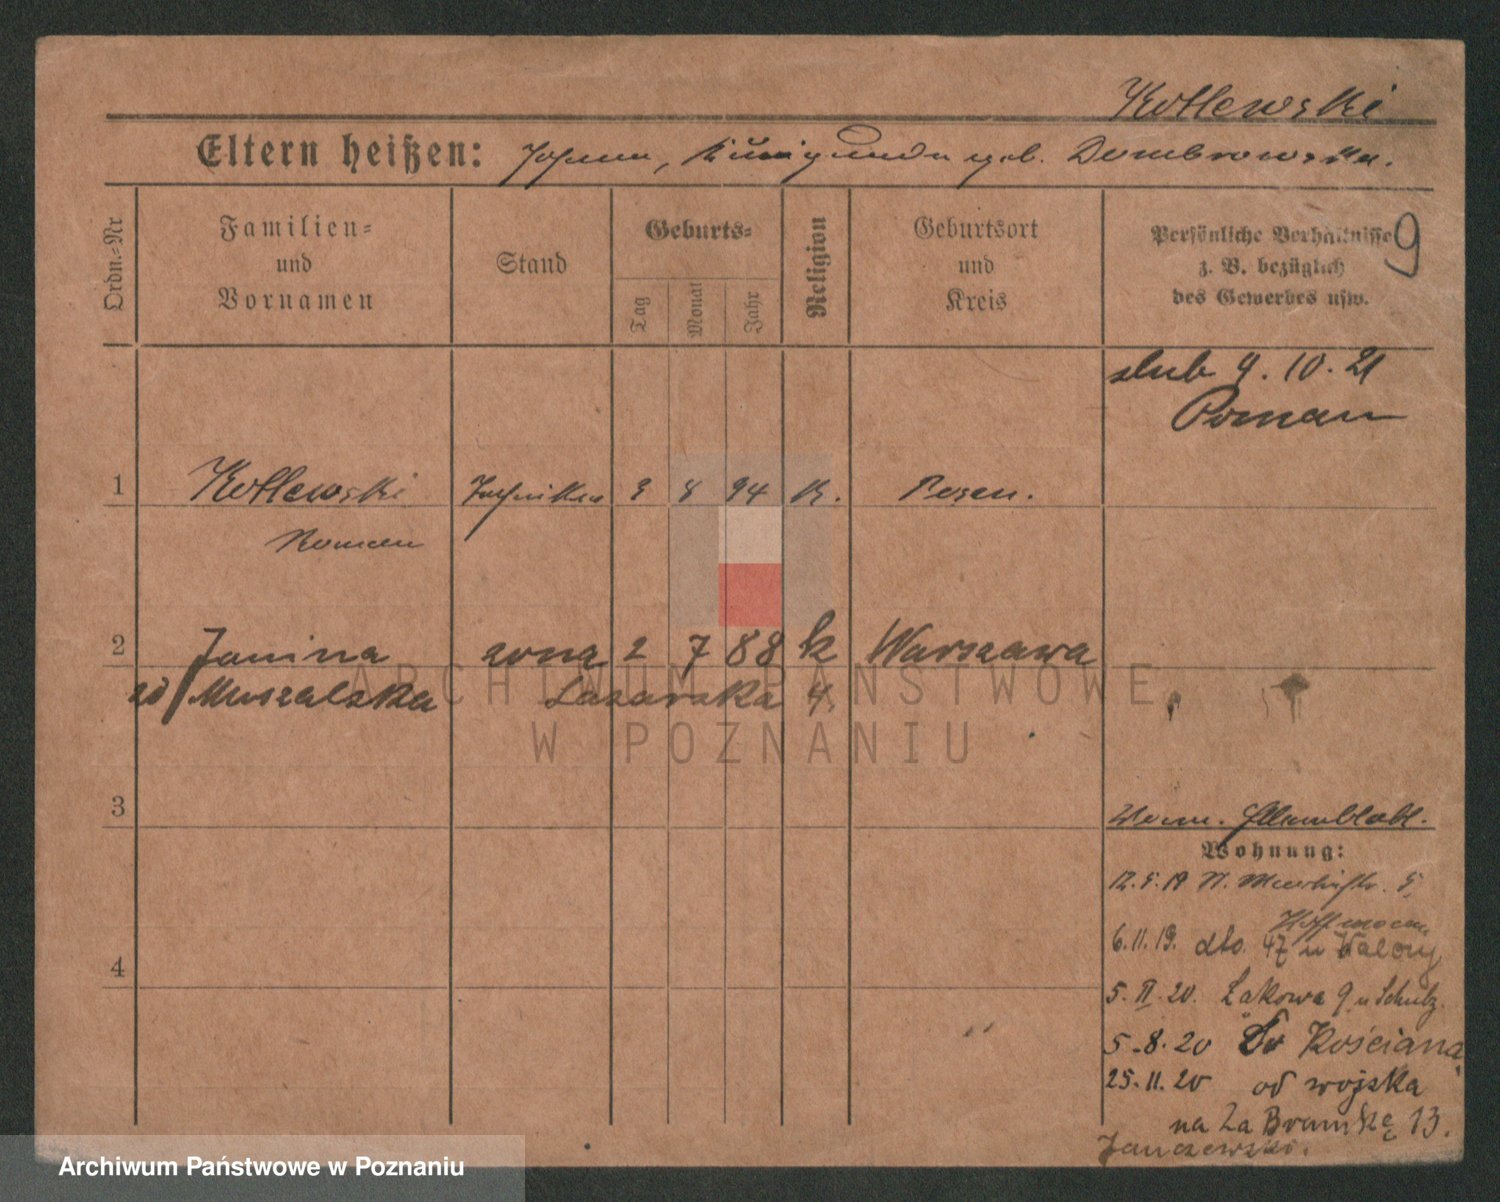 Kotlewski
Eltern heißen: Johann, Kunigunda geb. Dombrowska.
Ordn.-Nr
Familien-
und
Vornamen
Stand
Geburts-
Tag
Monat
Jahr
Religion
Geburtsort
und
Kreis
Persönliche Verhältnisse
z. B. bezüglich
des Gewerbes usw.
9
slub 9. 10. 21
Poznan
1 Kotlewski Techniker 3 8 94 K. Posen.
Roman
2 Janina zona 2 7 88 k Warszawa
zd Muszalska Lazarska 4.
ARCHIWUM PAŃSTWOWE
W POZNANIU
3
Wohnung:
12.5.19
Hoffmann
6.11.19. dto. 47 u
4
5. II. 20. Łąkowa 9 u Schulz.
5.8.20 Do Kościana
25.11.20 od wojska
na Za Bramką 13.
Janczewski.
Archiwum Państwowe w Poznaniu